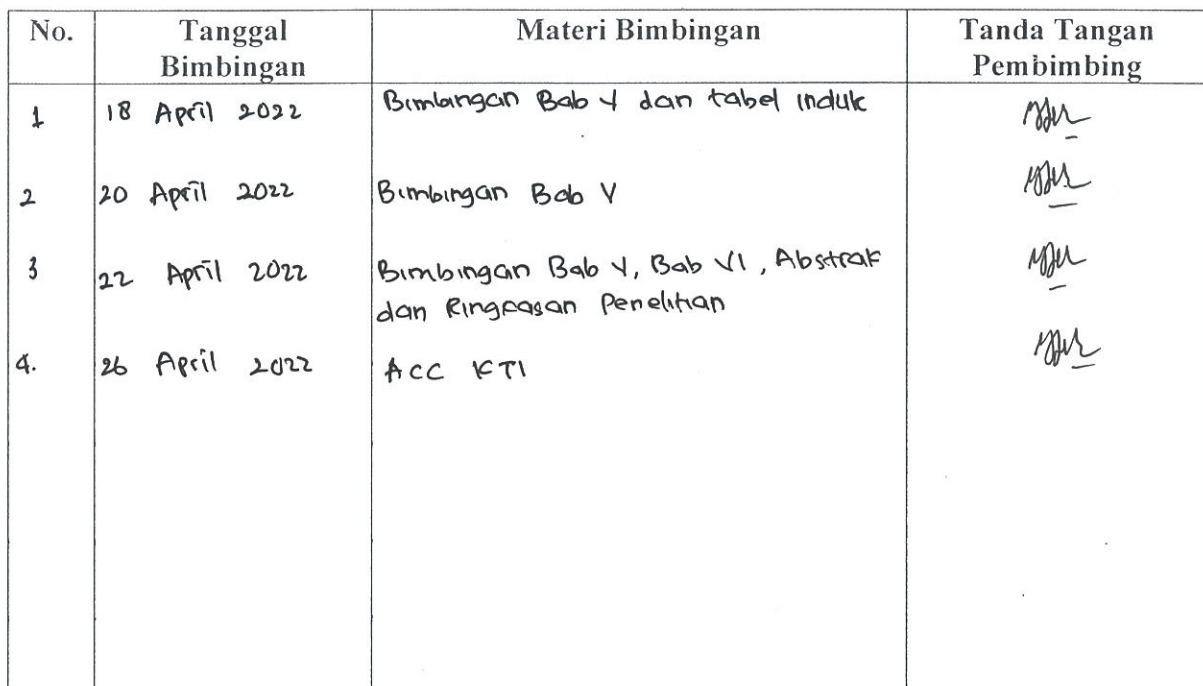 No. Tanggal Bimbingan Materi Bimbingan Tanda Tangan Pembimbing
1 18 April 2022 Bimbingan Bab V dan tabel induk
2 20 April 2022 Bimbingan Bab V
3 22 April 2022 Bimbingan Bab V, Bab VI, Abstrak
dan Ringkasan Penelitian
4. 26 April 2022 ACC KTI